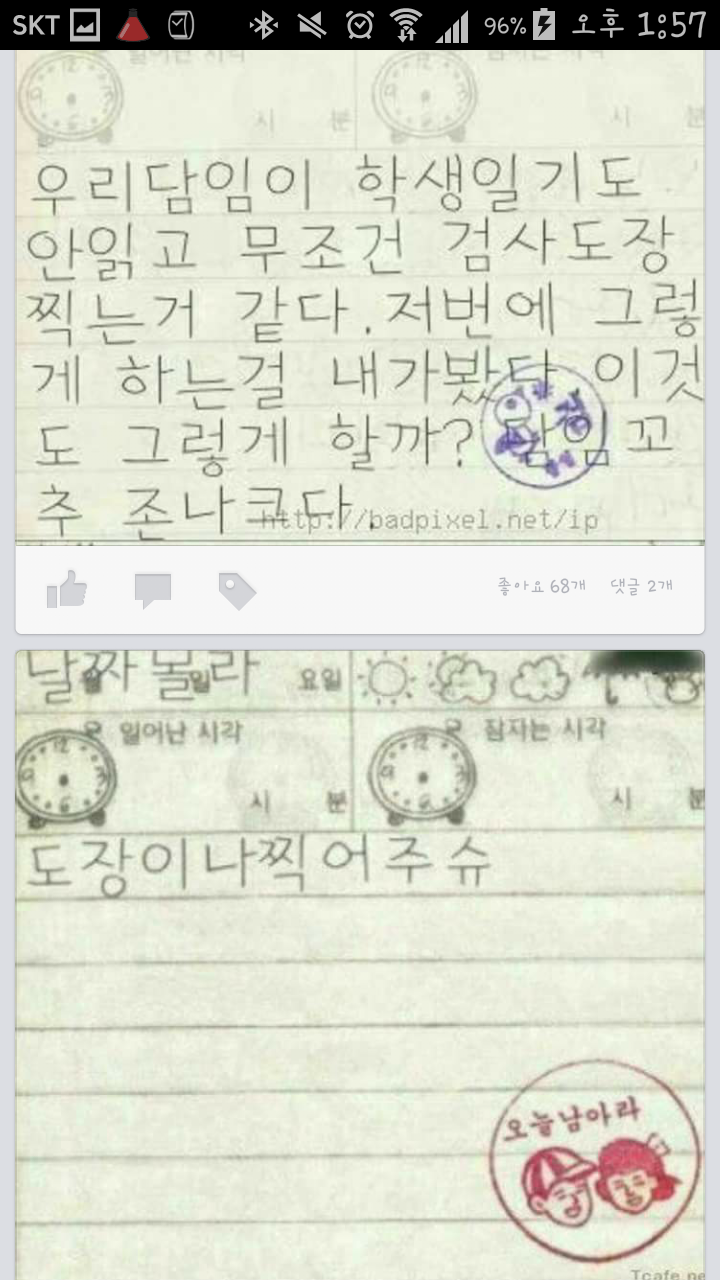 SKT 96% 오후 1:57
일어난 시각 잠자는 시각
시 분 시 분
우리담임이 학생일기도
안읽고 무조건 검사도장
찍는거 같다. 저번에 그렇
게 하는걸 내가봤다 이것
도 그렇게 할까? 담임 꼬
추 존나크다.
http://badpixel.net/ip
좋아요 68개 댓글 2개
날짜 몰라 요일
일어난 시각 잠자는 시각
시 분 시 분
도장이나찍어주슈
오늘남아라
Tcafe.ne